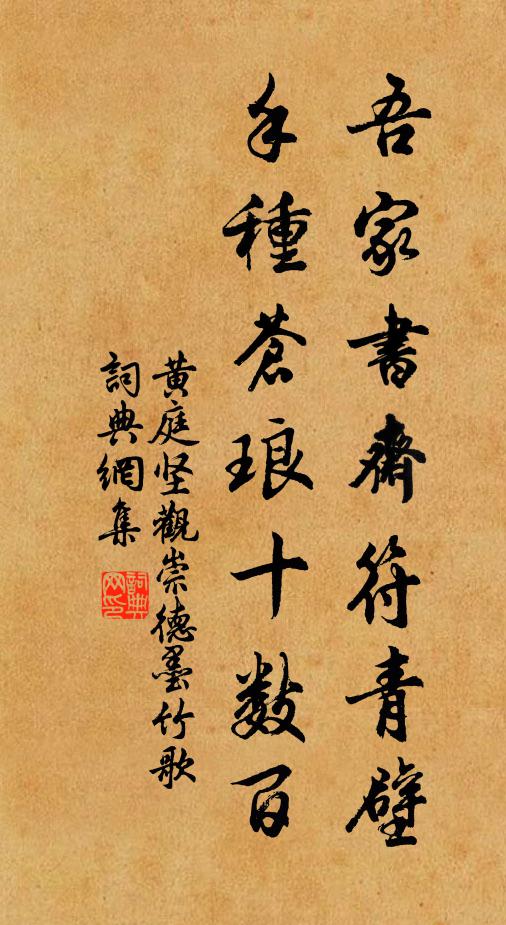 吾家書齋符青壁
手種蒼琅十數百
黃庭坚觀崇德墨竹歌
詞典網集
詞典网印